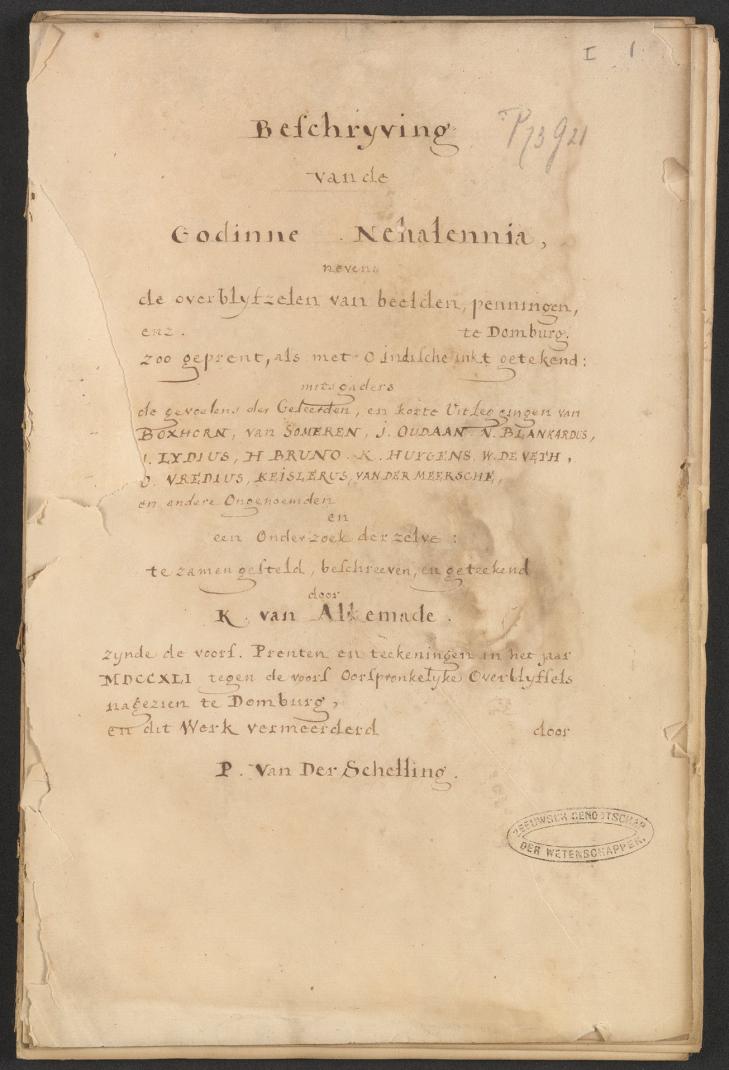 I 1
Beschryving
van de
Godinne Nehalennia,
nevens
de overblyfzelen van beelden, penningen,
enz. te Domburg.
zoo geprent, als met O indische inkt getekend:
mitsgaders
de gevoelens der Geleerden, en korte Uitleggingen van
BOXHORN, van SOMEREN, J. OUDAAN N. BLANKARDUS,
J. LYDIUS, H BRUNO. K. HUYGENS, W. DE VETH,
O. VREDIUS, KEISLERUS, VAN DER MEERSCHE,
en andere Ongenoemden
en
een Onderzoek derzelve:
te zamen gesteld, beschreeven, en geteekend
door
K. van Alkemade.
zynde de voors. Prenten en teekeningen in het jaar
MDCCXLI tegen de voors Oorspronkelyke Overblyffels
nagezien te Domburg,
en dit Werk vermeerderd door
P. Van Der Schelling.
ZEEUWSCH GENOOTSCHAP
DER WETENSCHAPPEN.